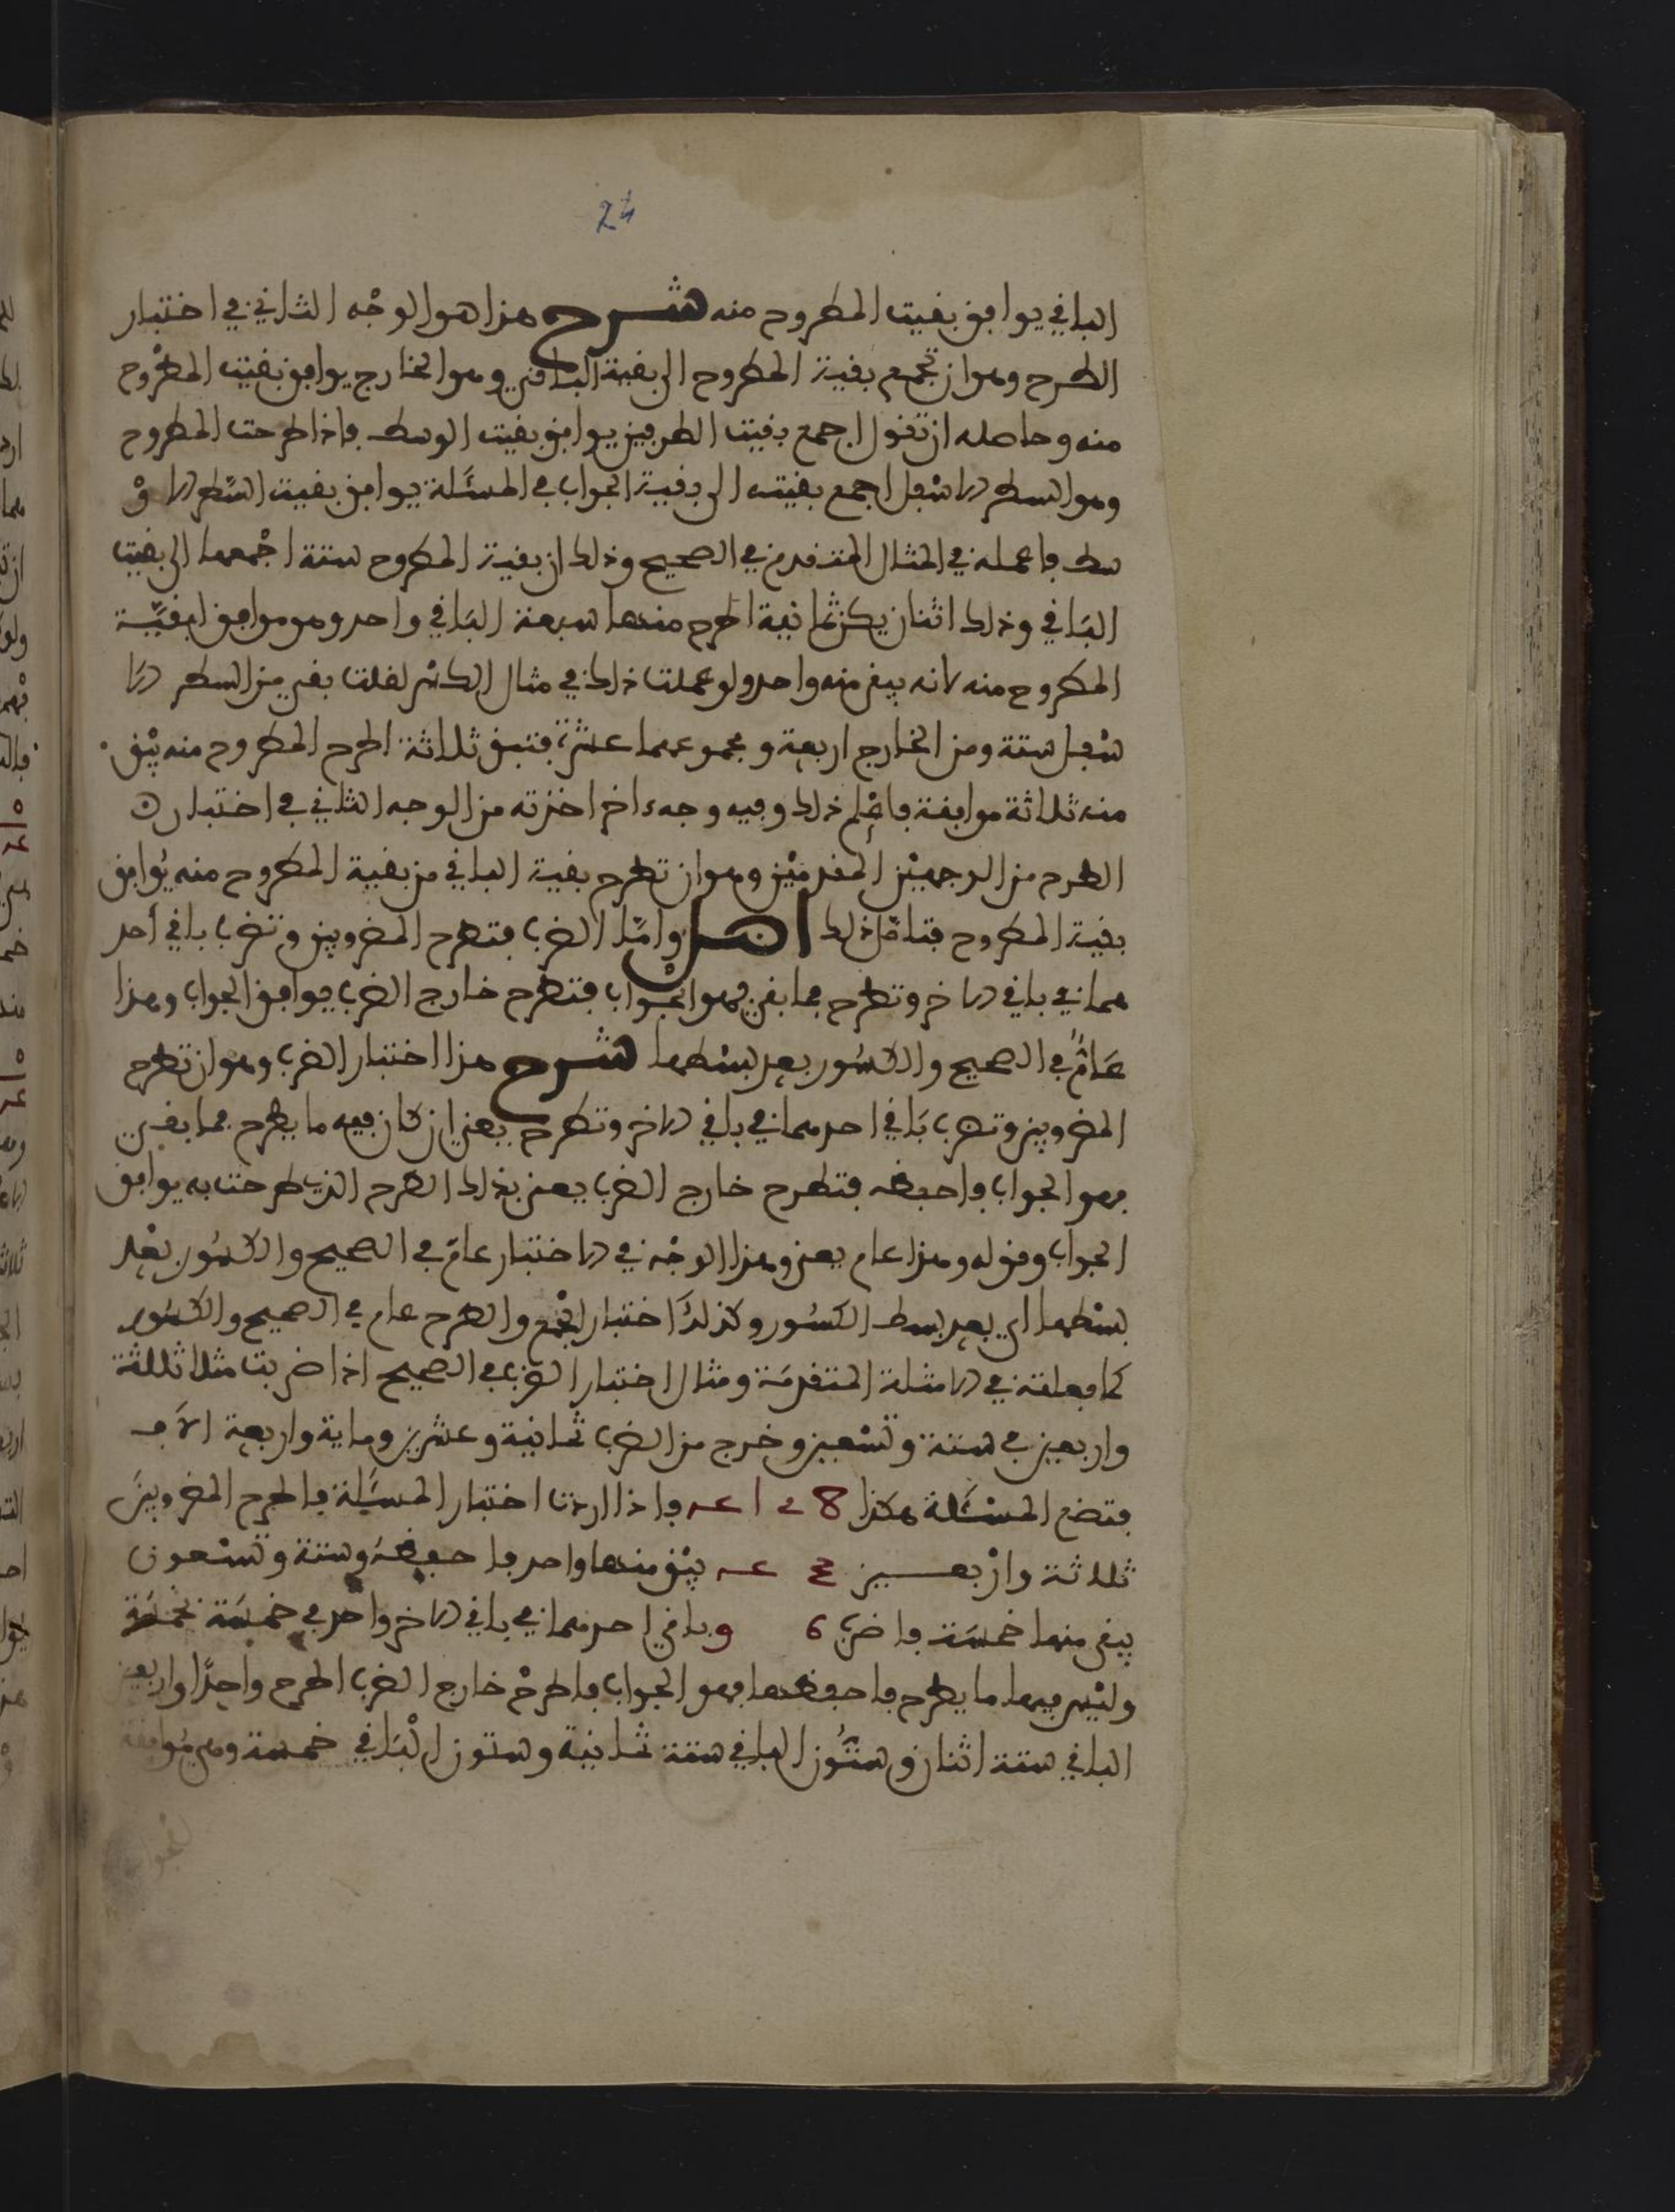 24
الباقي يوافق بقيت المطروح منه شرح هذا هو الوجه الثاني في اختبار
الطرح وهو ان تجمع بقية المطروح الى بقية الباقي وهو الخارج يوافق بقيت المطروح
منه وحاصله ان تقول اجمع بقيت الطرفين يوافق بقيت الوسط فاذا طرحت المطروح
وهو السطر الاسفل اجمع بقيته الى بقية الجواب في المسئلة يوافق بقيت السطر الاو
سط فاعمله في المثال المتقدم في الصحيح وذلك ان بقية المطروح ستة اجمعها الى بقيت
الباقي وذلك اثنان يكن ثمانية اطرح منها سبعة الباقي واحد وهو موافق لبقيّة
المطروح منه لانه يبقى منه واحد ولو عملت ذلك في مثال الكسر لقلت بقى من السطر الا
سفل ستة ومن الخارج اربعة ومجموعهما عشرة فتبق ثلاثة اطرح المطروح منه يبْق
منه ثلاثة موافقة فاعْلم ذلك وفيه وجه ءاخر اخذته من الوجه الثاني في اختبار
الطرح من الوجهيْن المقدميْن وهو ان تطرح بقية الباقي من بقية المطروح منه يُوافق
بقية المطروح فتامّل ذلك اصل وامّا الضرب فتطرح المضروبين وتضرب باقي احد
هما في باقي الاخر وتطرح فما بقى فهو الجواب فتطرح خارج الضرب يوافق الجواب وهذا
عَامٌّ في الصحيح والكسُور بعد بسْطهما شرح هذا اختبار الضرب وهو ان تطرح
المضروبين وتضرب بَاقي احدهما في باقي الاخر وتطرح يعني ان كان فيه ما يطرح فما بقى
فهو الجواب فاحفظه فتطرح خارج الضرب يعنى بذلك الطرح الذى طرحت به يوافق
الجواب وقوله وهذا عام يعنى وهذا الوجْه في الاختبار عامّ في الصحيح والكسُور بعْد
بسْطهما اى بعد بسط الكسُور وكذلكَ اختبار الجمْع والطرح عام في الصحيح والكسُور
كما فعلته في الامثلة المتقدمَة ومثال اختبار الضرب في الصحيح اذا ضربت مثلا ثلثة
واربعين في ستة وتسْعين وخرج من الضرب ثمانية وعشرين وماية واربعة الاَف
فتضع المسْئَلة هكذا 8 2 1 4 فاذا اردت اختبار المسئَلة فاطرح المضروبينَ
ثلاثة وارْبعين 3 4 يبْق منها واحد فاحفظهُ وستة وتسْعون
يبقى منها خمسَة فاضرب 6 9 باقي احدهما في باقي الاخر واحد في خمسَة بخمسَة
وليْس فيها ما يطرح فاحفظها فهو الجواب فاطرحْ خارج الضرب اطرح واحدًا واربعين
الباقي ستة اثنان وستُّون الباقي ستة ثمانية وستون الْبَاقي خمسة وهي مُوافقة